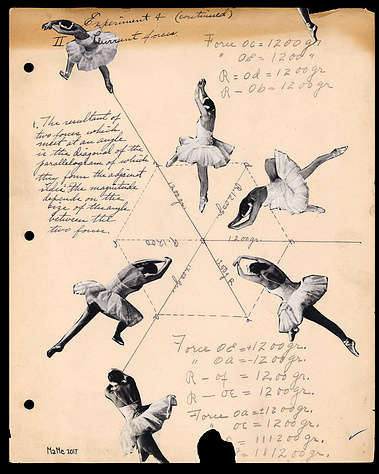 Experiment 4 (continued)
II Current forces
Force OC = 1200 gr.
" OE = 1200 "
R = Od = 1200 gr
R - Ob = 1200 gr.
1. The resultant of
two forces, which
meet at an angle
is the diagonal of the
parallelogram of which
they form the adjacent
sides. The magnitude
depends on the
size of the angle
between the
two forces.
R. 1200
R. 1200
1200 gr.
Force OE = 1200 gr.
" Oa = 1200 gr.
R - Of = 1200 gr.
R - OE = 1200 gr.
Force Oa = 1200 gr.
" OC = 1200 gr.
= 111200 gr.
= 111200 gr.
MaMe 2017